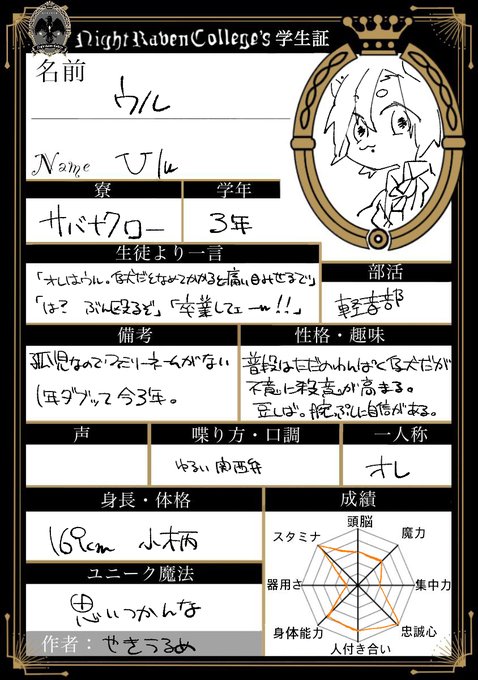 Night Raven College's 学生証
名前
ウル
Name Ulu
寮
学年
サバナクロー
3年
生徒より一言
部活
「オレはウル。仔犬だとなめてかかると痛い目みせるで」
「は? ぶん殴るぞ」「卒業してェーw!!」
軽音部
備考
性格・趣味
孤児なのでファミリーネームがない
1年ダブって今3年。
普段はただのわんぱく仔犬だが
不意に殺意が高まる。
豆しば。腕っぷしに自信がある。
声
喋り方・口調
一人称
ゆるい関西弁
オレ
身長・体格
成績
169cm 小柄
頭脳
魔力
集中力
忠誠心
人付き合い
身体能力
器用さ
スタミナ
ユニーク魔法
思いつかんな
作者:やきうるめ